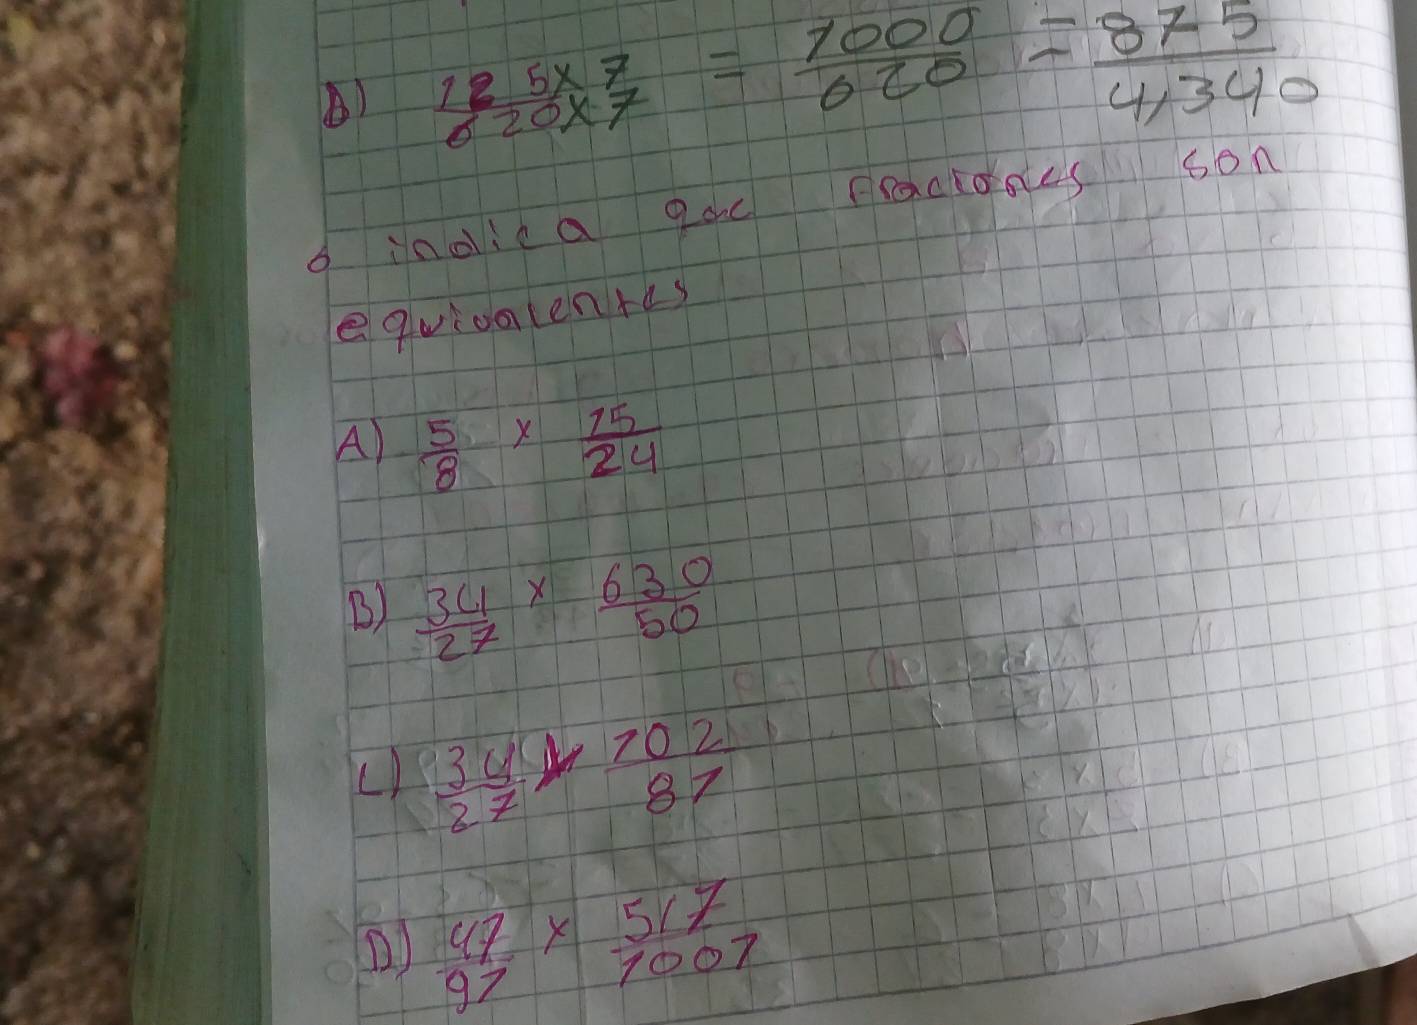 D) 125x7/620x7 = 1000/620 = 875/4,340
6 indica que fracciones son
equivalentes
A) 5/8 x 15/24
B) 34/27 x 630/50
C) 34/27 x 102/81
D) 47/91 x 517/1001